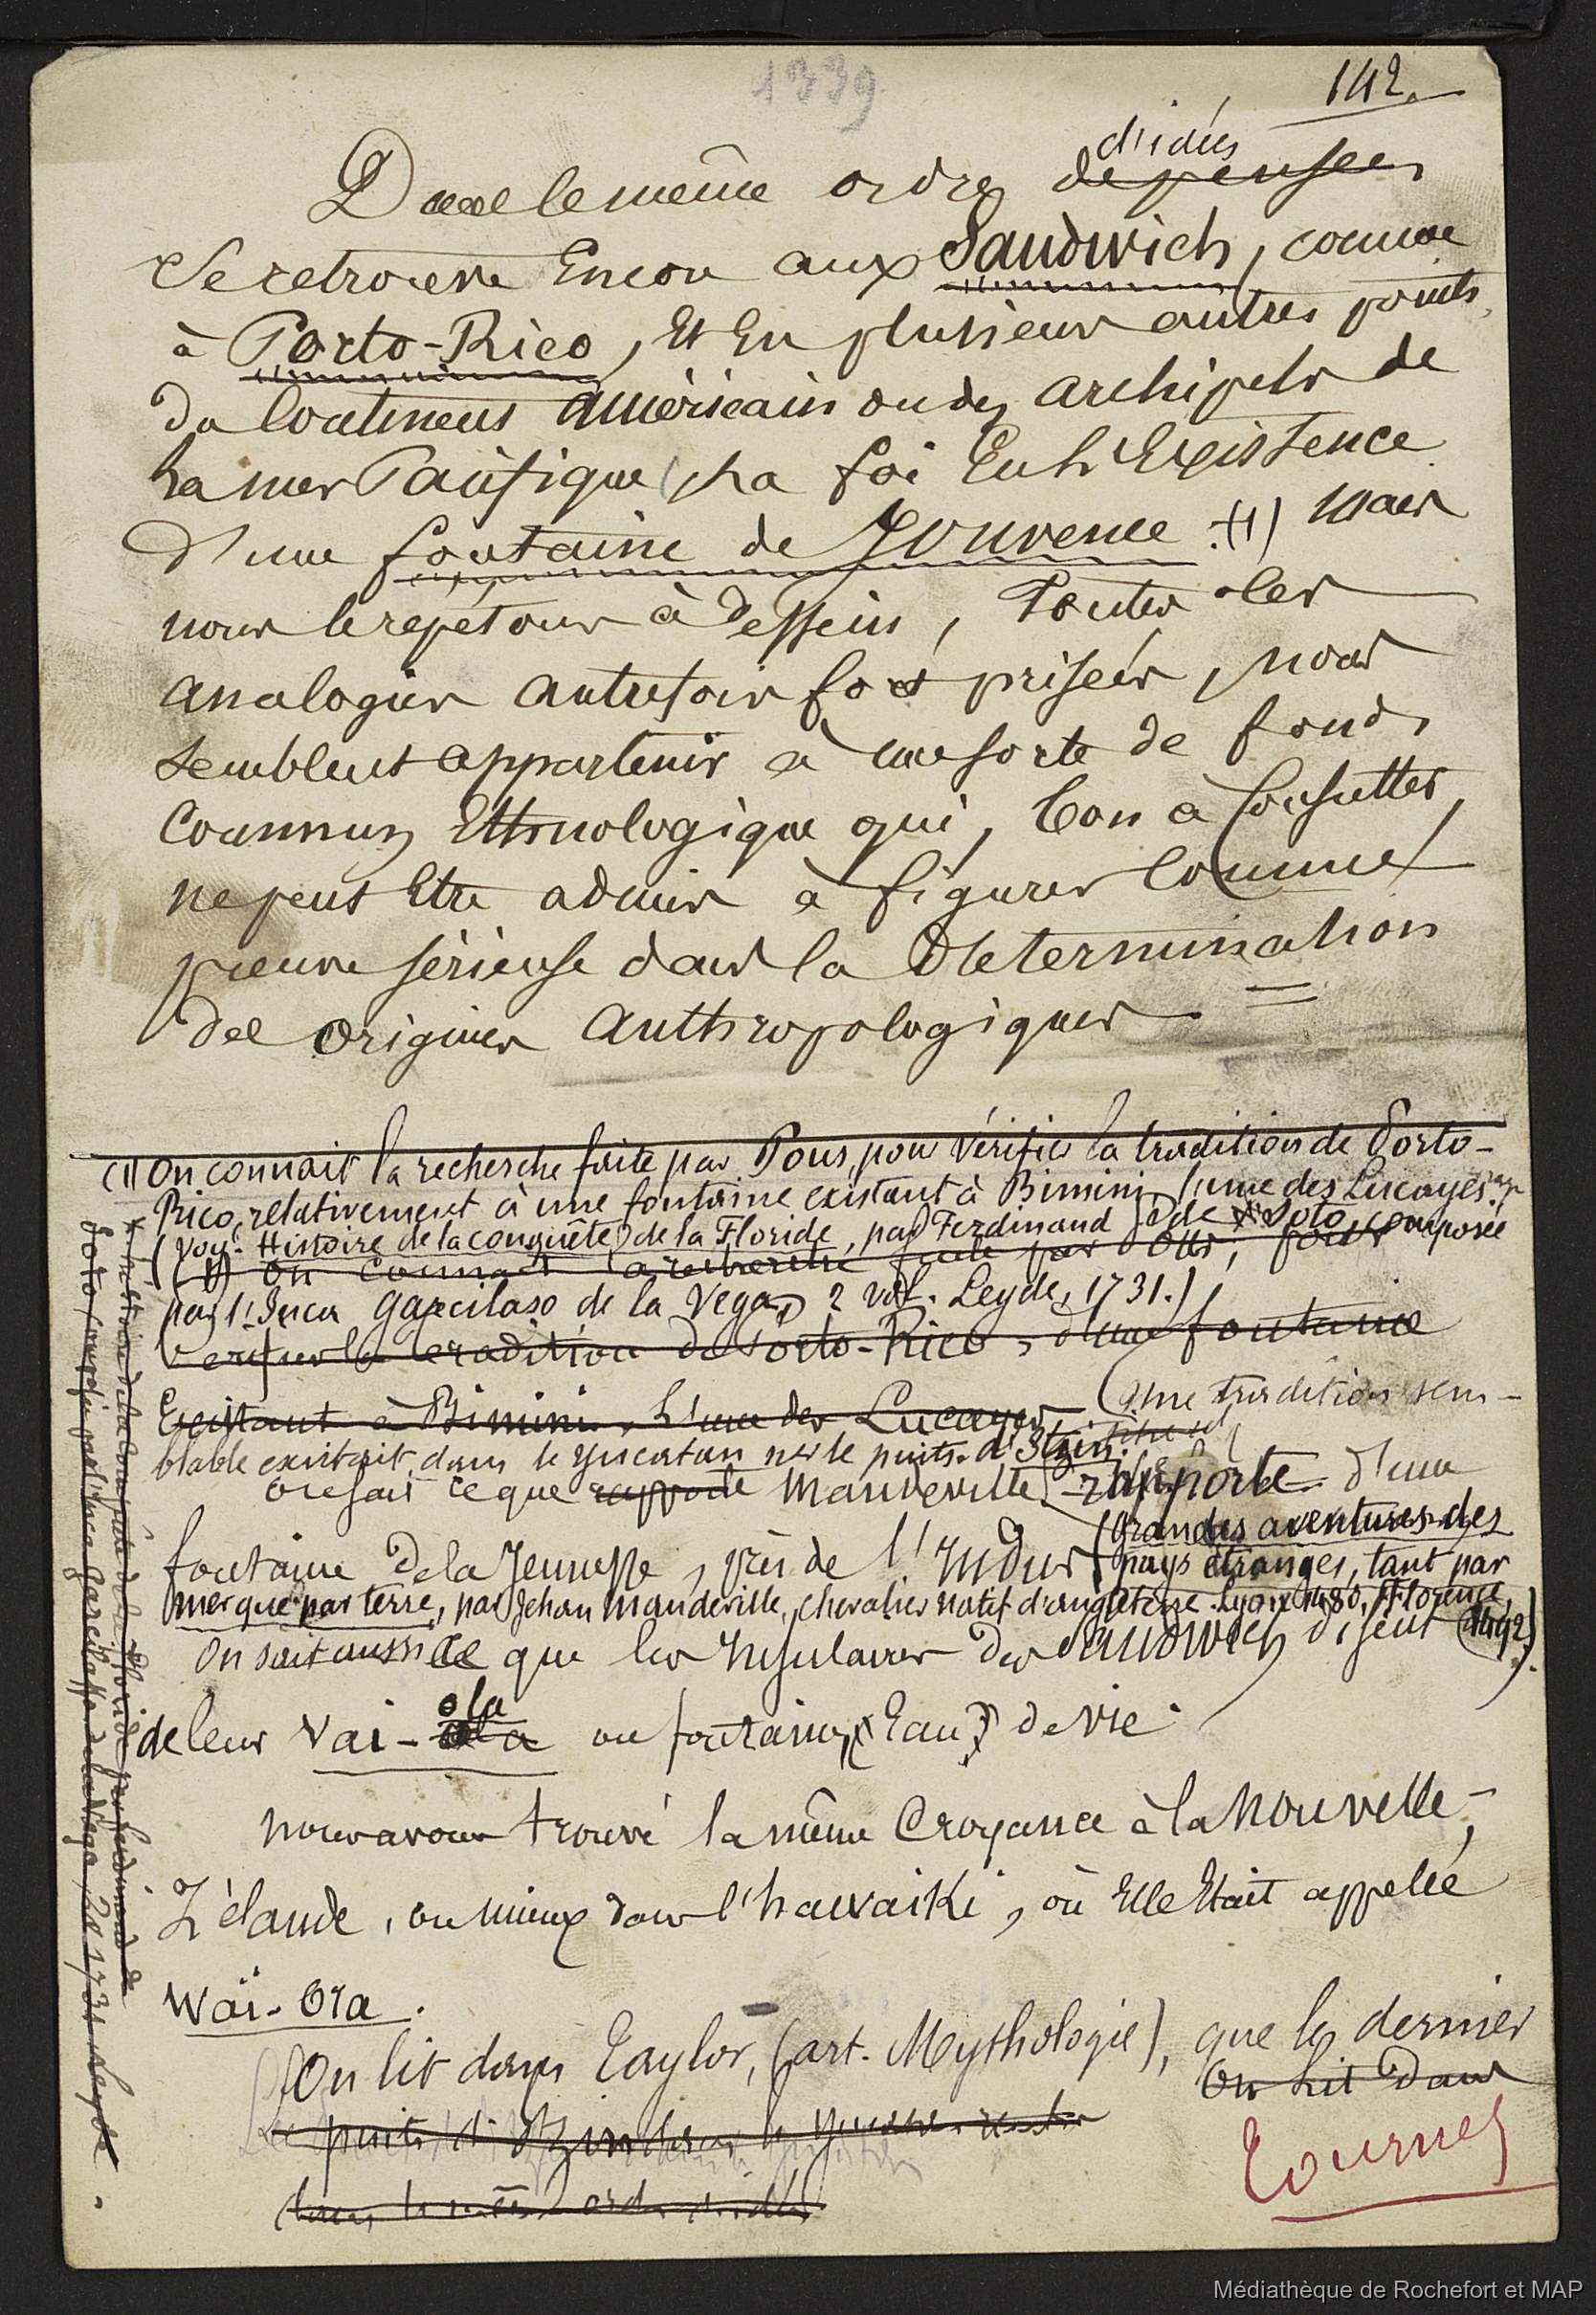 1339
142.
d'idées
Dans le même ordre de pensées
Se retrouve Encore aux Sandwich, comme
à Porto-Rico, Et En plusieurs autres points
du Continent américain ou des archipels de
La mer Pacifique, La foi En L'Existence
d'une fontaine de Jouvence. (1) Mais
nous le répétons à dessein, Toutes les
analogies autrefois fort prisées, nous
semblent appartenir à une sorte de fonds
Commun Ethnologique qui, bon à Consulter,
ne peut Etre admis à figurer Comme
preuve sérieuse dans la Détermination
des origines anthropologiques.
(1) On connait la recherche faite par Pons, pour vérifier la tradition de Porto-
Rico, relativement à une fontaine existant à Bimini, l'une des Lucayes.
(Voy. Histoire de la conquête de la Floride, par Ferdinand de Soto, composée
(1) On connait la recherche faite par Pons, pour
par l'Inca Garcilaso de la Vega, 2 vol. Leyde, 1731.)
Verifier la tradition de Porto-Rico, d'une fontaine
Existant à Bimini, L'une des Lucayes (Une tradition sem-
blable existait dans le Yucatan sur le puits d'Itzin.
On sait ce que rapporte Mandeville rapporte d'une
fontaine de la Jeunesse, près de l'Indus (grandes aventures des
pays étranges, tant par
mer que par terre, par Jehan Mandeville, chevalier natif d'angleterre. Lyon 1480, Florence
1492).
On sait aussi ce que les Insulaires des Sandwich disent
ola
de leur Vai-ola ou fontaine (Eau) de vie.
nous avons trouvé la même Croyance à la Nouvelle-
Zélande, ou mieux dans l'hawaiki, où Elle Etait appelée
Waï-Ora.
On lit dans Taylor, (art. Mythologie), que le dernier
On lit dans
Le puits d'Itzin dans le
dans le même ordre d'idées
Tournez
* histoire de la Conquête de la Floride par ferdinand de
Soto, composée par l'Inca Garcilasso de la Vega, 1731 Leyde.